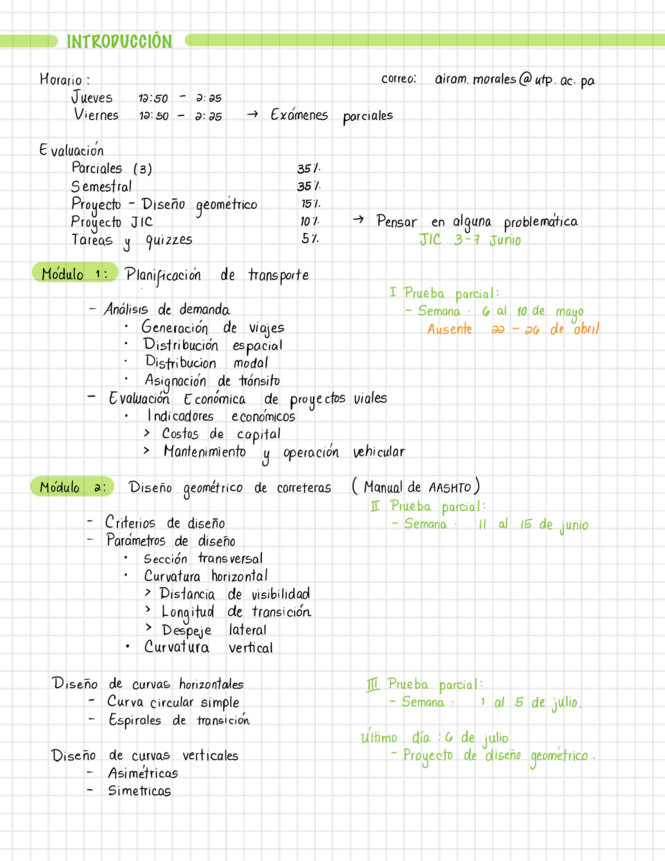 INTRODUCCIÓN
Horario:
correo: airam.morales@utp.ac.pa
Jueves 12:50 - 2:25
Viernes 12:50 - 2:25 → Exámenes parciales
Evaluación
Parciales (3) 35%
Semestral 35%
Proyecto - Diseño geométrico 15%
Proyecto JIC 10% → Pensar en alguna problemática
Tareas y quizzes 5% JIC 3-7 Junio
Módulo 1: Planificación de transporte
I Prueba parcial:
- Semana: 6 al 10 de mayo
Ausente 22 - 26 de abril
- Análisis de demanda
· Generación de viajes
· Distribución espacial
· Distribucion modal
· Asignación de tránsito
- Evaluación Económica de proyectos viales
· Indicadores económicos
> Costos de capital
> Mantenimiento y operación vehicular
Módulo 2: Diseño geométrico de carreteras (Manual de AASHTO)
II Prueba parcial:
- Semana: 11 al 15 de junio
- Criterios de diseño
- Parámetros de diseño
· Sección transversal
· Curvatura horizontal
> Distancia de visibilidad
> Longitud de transición
> Despeje lateral
· Curvatura vertical
Diseño de curvas horizontales
- Curva circular simple
- Espirales de transición
III Prueba parcial:
- Semana: 1 al 5 de julio.
último día: 6 de julio
- Proyecto de diseño geométrico.
Diseño de curvas verticales
- Asimétricas
- Simetricas